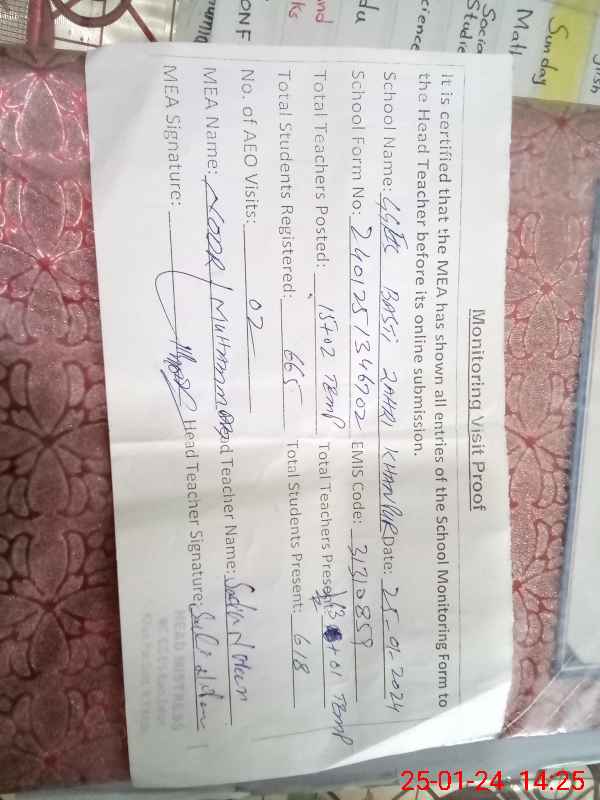 Monitoring Visit Proof
It is certified that the MEA has shown all entries of the School Monitoring Form to
the Head Teacher before its online submission.
School Name: GGES BASTI ZAHRI KHANPUR Date: 25-01-2024
School Form No: 2401251346702 EMIS Code: 31310859
Total Teachers Posted: 15+02 TEMP Total Teachers Present: 13 +01 TEMP
Total Students Registered: 665 Total Students Present: 618
No. of AEO Visits: 02
MEA Name: MUHAMMAD Head Teacher Name: Sadia Noreen
MEA Signature: Head Teacher Signature:
HEAD MISTRESS
Sunday
Math
Social
Studie
cience
25-01-24 14:25